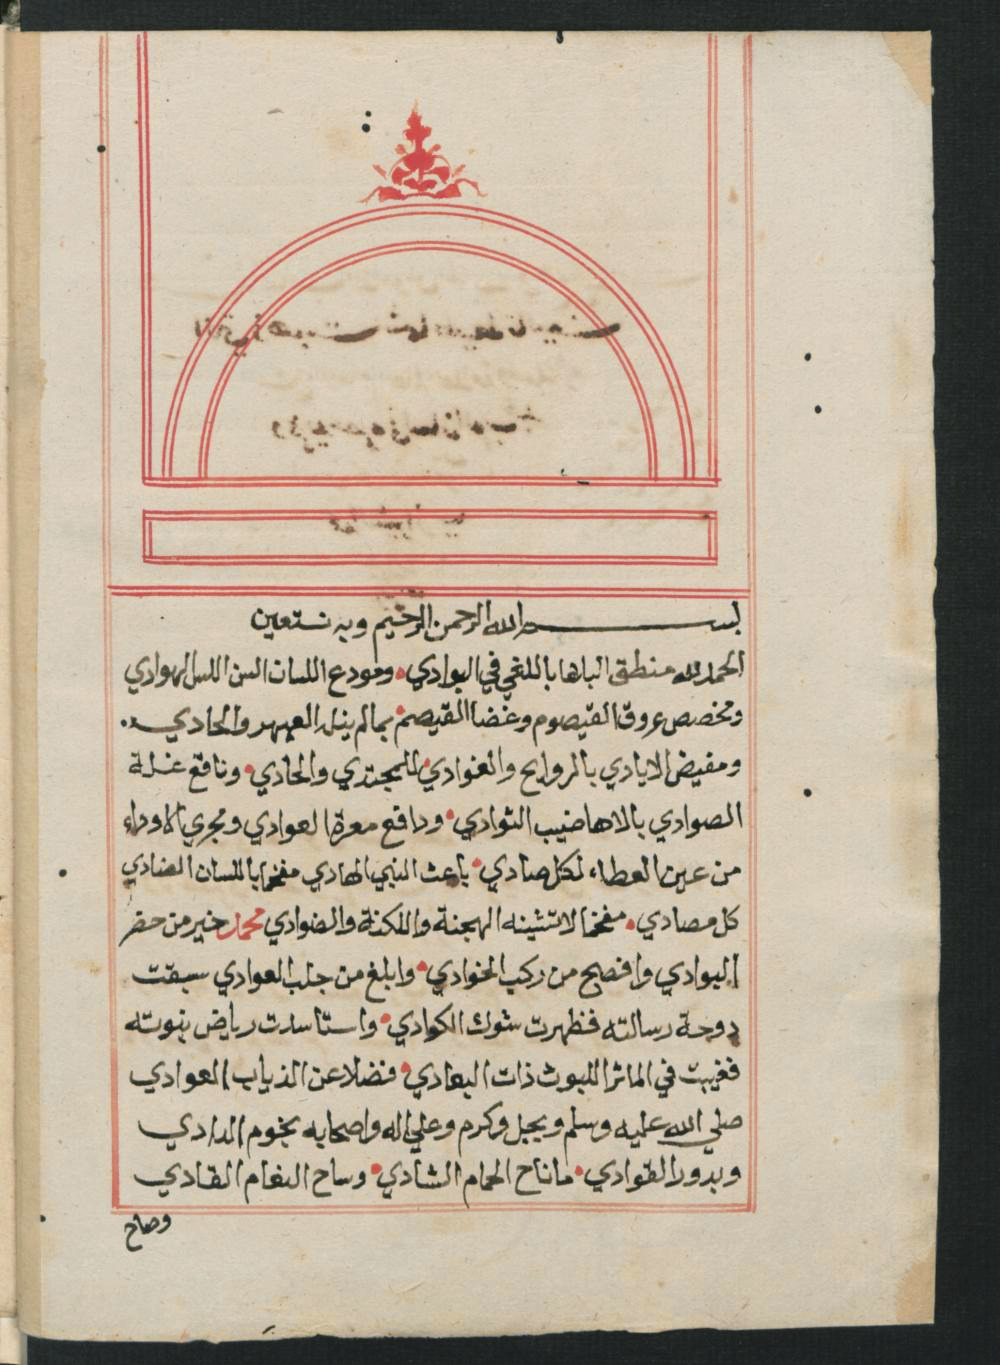 بسم الله الرحمن الرحيم وبه نستعين
الحمد لله منطق البلغا باللغي في البوادي ومودع اللسان السن اللسل الهوادي
ومخصص عروق القيصوم وغضا القيصم بمالم ينله العبهر والجادي
ومفيض الايادي بالروايح والغوادي للمجتدي والجادي وناقع غلة
الصوادي بالاهاضيب الثوادي ودافع معرة العوادي ومجري الاوداء
من عين العطاء لكل صادي باعث النبي الهادي مفخما باللسان الضادي
كل مصادي مفخما لا تشينه الهجنة واللكنة والضوادي محمد خير من حضر
البوادي وافصح من ركب الخوادي وابلغ من جلب العوادي سبقت
دوحة رسالته فظهرت شوك الكوادي واستاسدت رياض نبوته
فغيبت في الماثر الليوث ذات البعادي فضلا عن الذياب العوادي
صلي الله عليه وسلم وبجل وكرم وعلي اله واصحابه نجوم الدادي
وبدور القوادي ما ناح الحمام الشادي وساح النعام القادي
وصاح